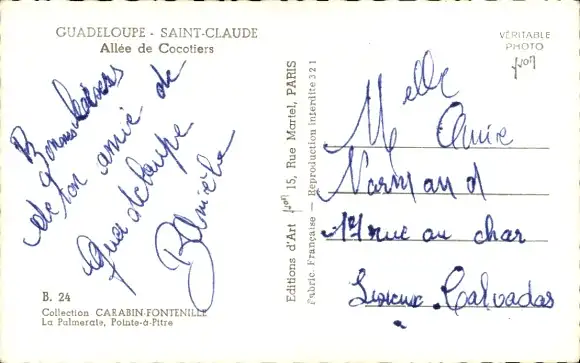 GUADELOUPE - SAINT-CLAUDE
Allée de Cocotiers
VÉRITABLE
PHOTO
Bonnes
de ton amie de
Guadeloupe
B. 24
Collection CARABIN-FONTENILLE
La Palmeraie, Pointe-à-Pitre
Editions d'Art 15, Rue Martel, PARIS
Fabric. Française - Reproduction interdite 321
Melle
Normand
rue au char
Lisieux Calvados